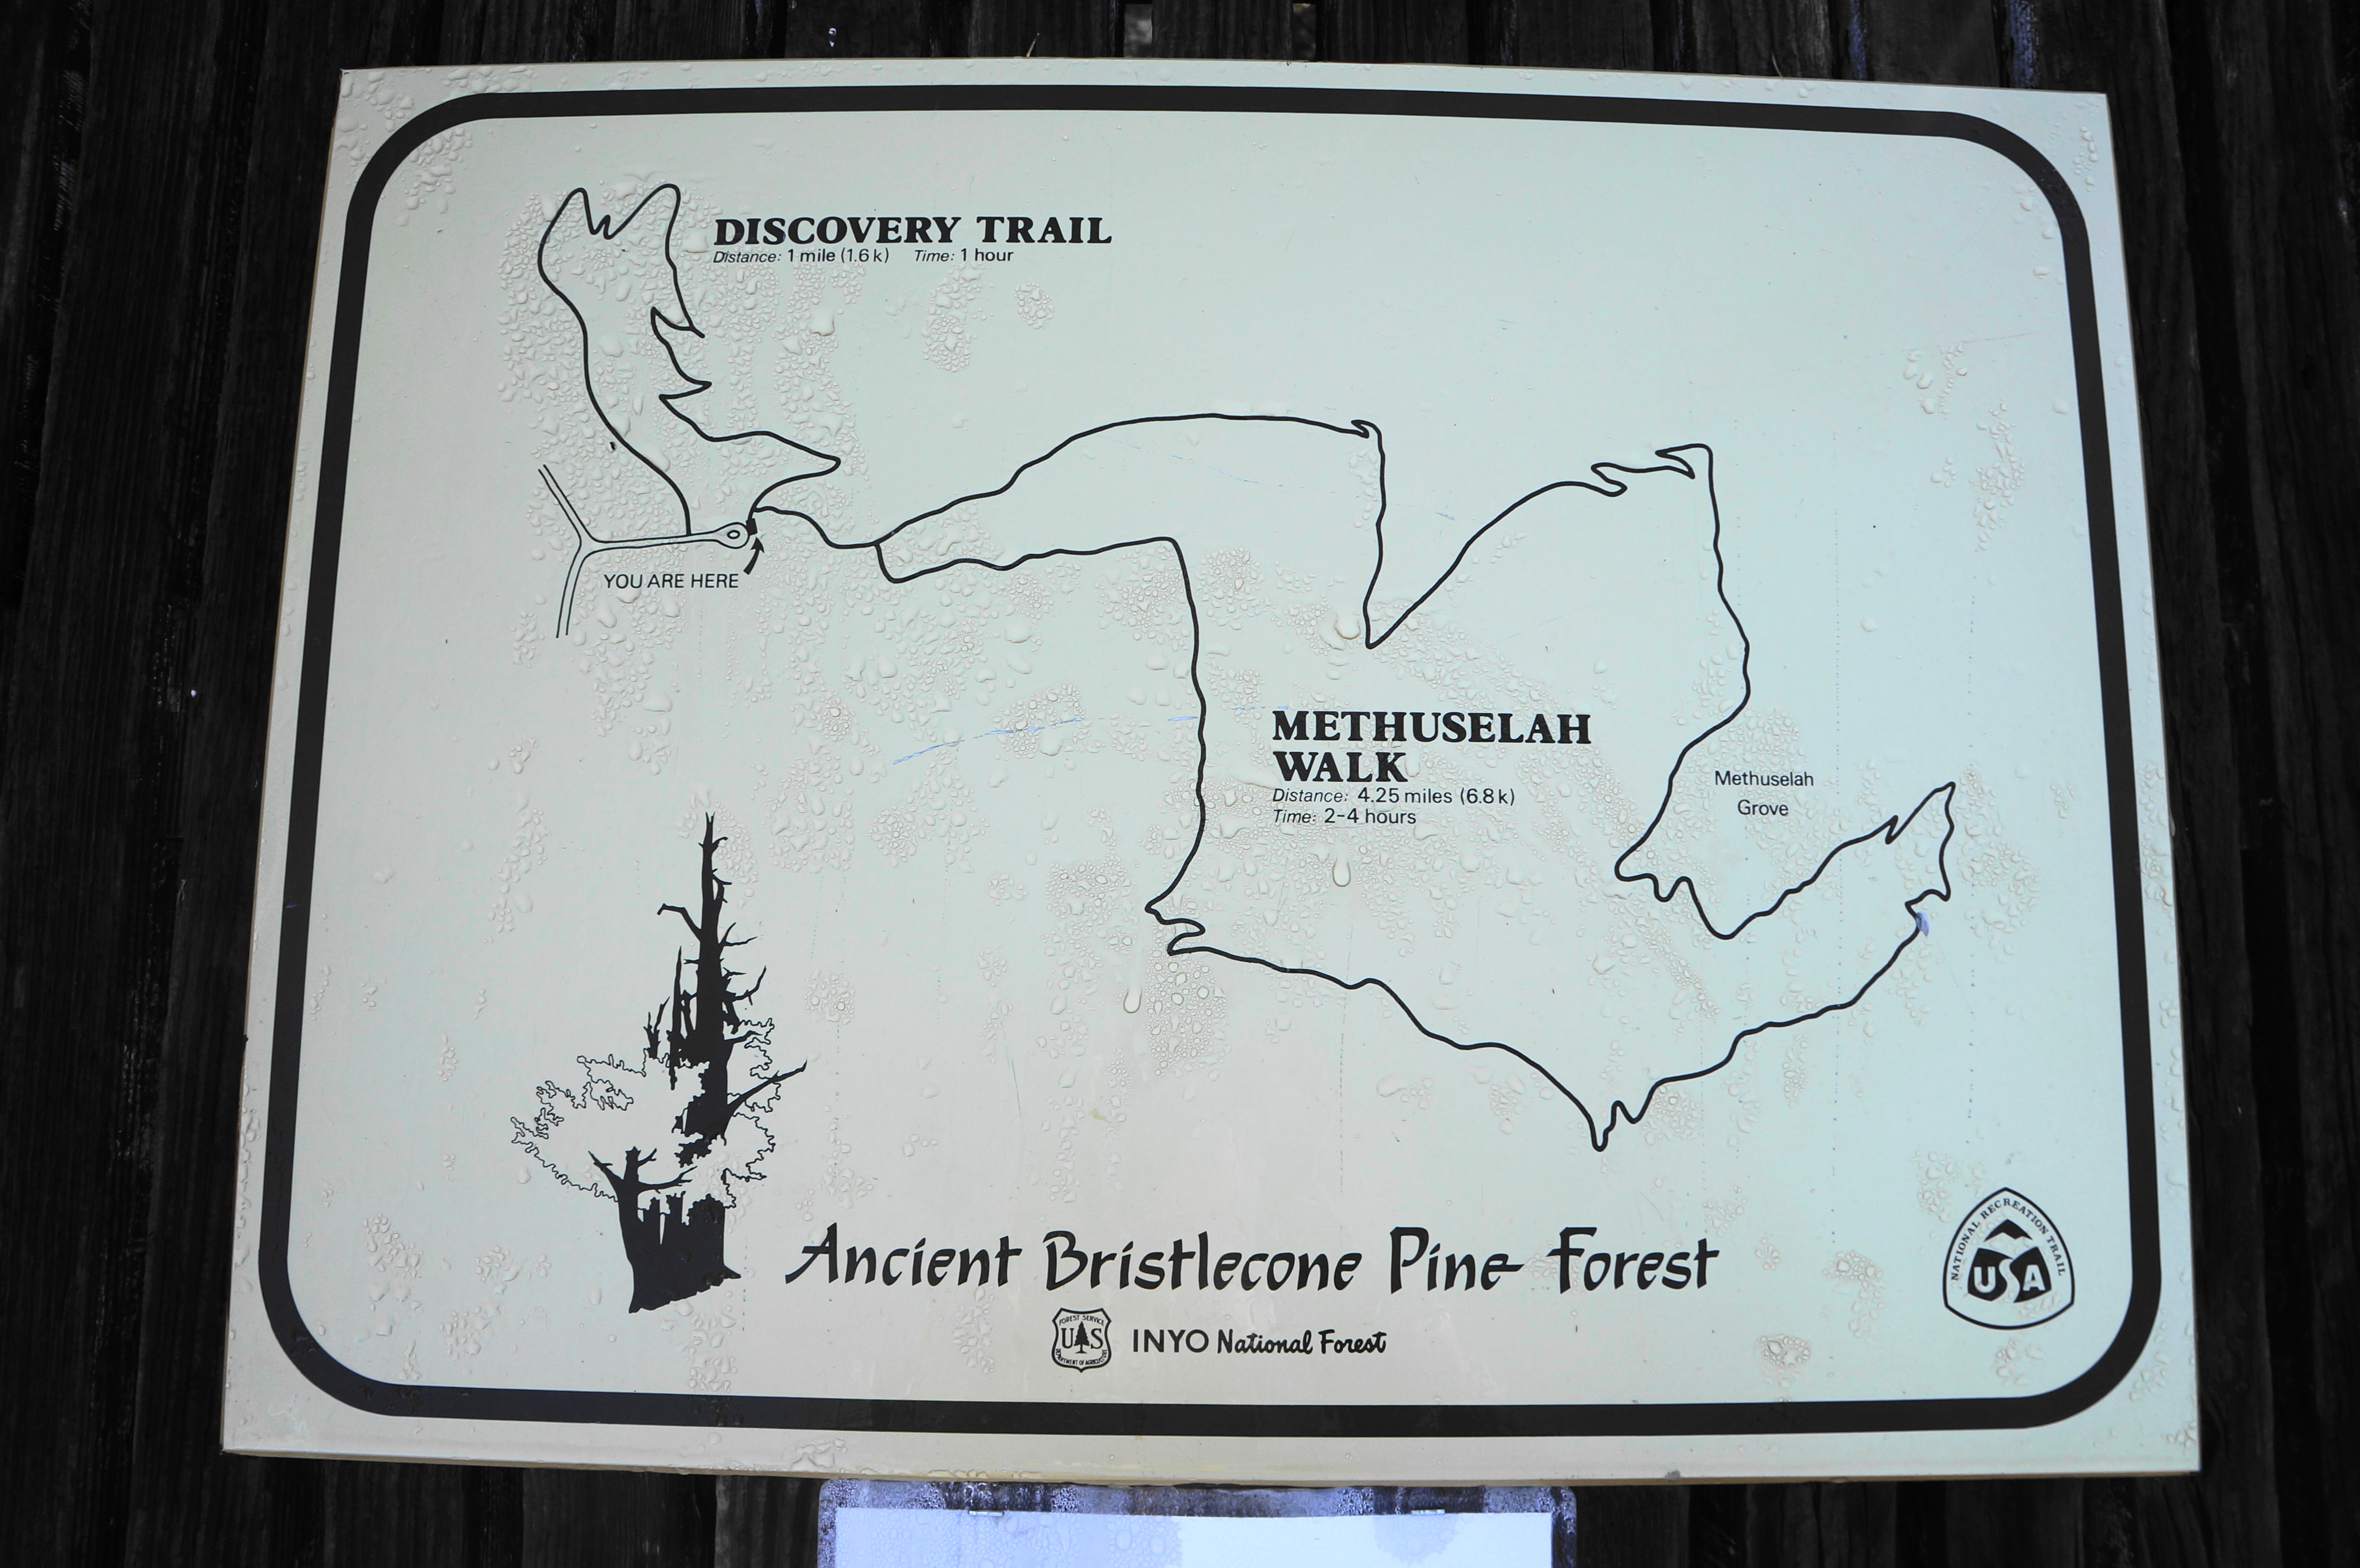 DISCOVERY TRAIL
Distance: 1 mile (1.6 k) Time: 1 hour
YOU ARE HERE
METHUSELAH
WALK
Distance: 4.25 miles (6.8 k)
Time: 2-4 hours
Methuselah
Grove
Ancient Bristlecone Pine Forest
FOREST SERVICE
US
DEPARTMENT OF AGRICULTURE
INYO National Forest
NATIONAL RECREATION TRAIL
USA